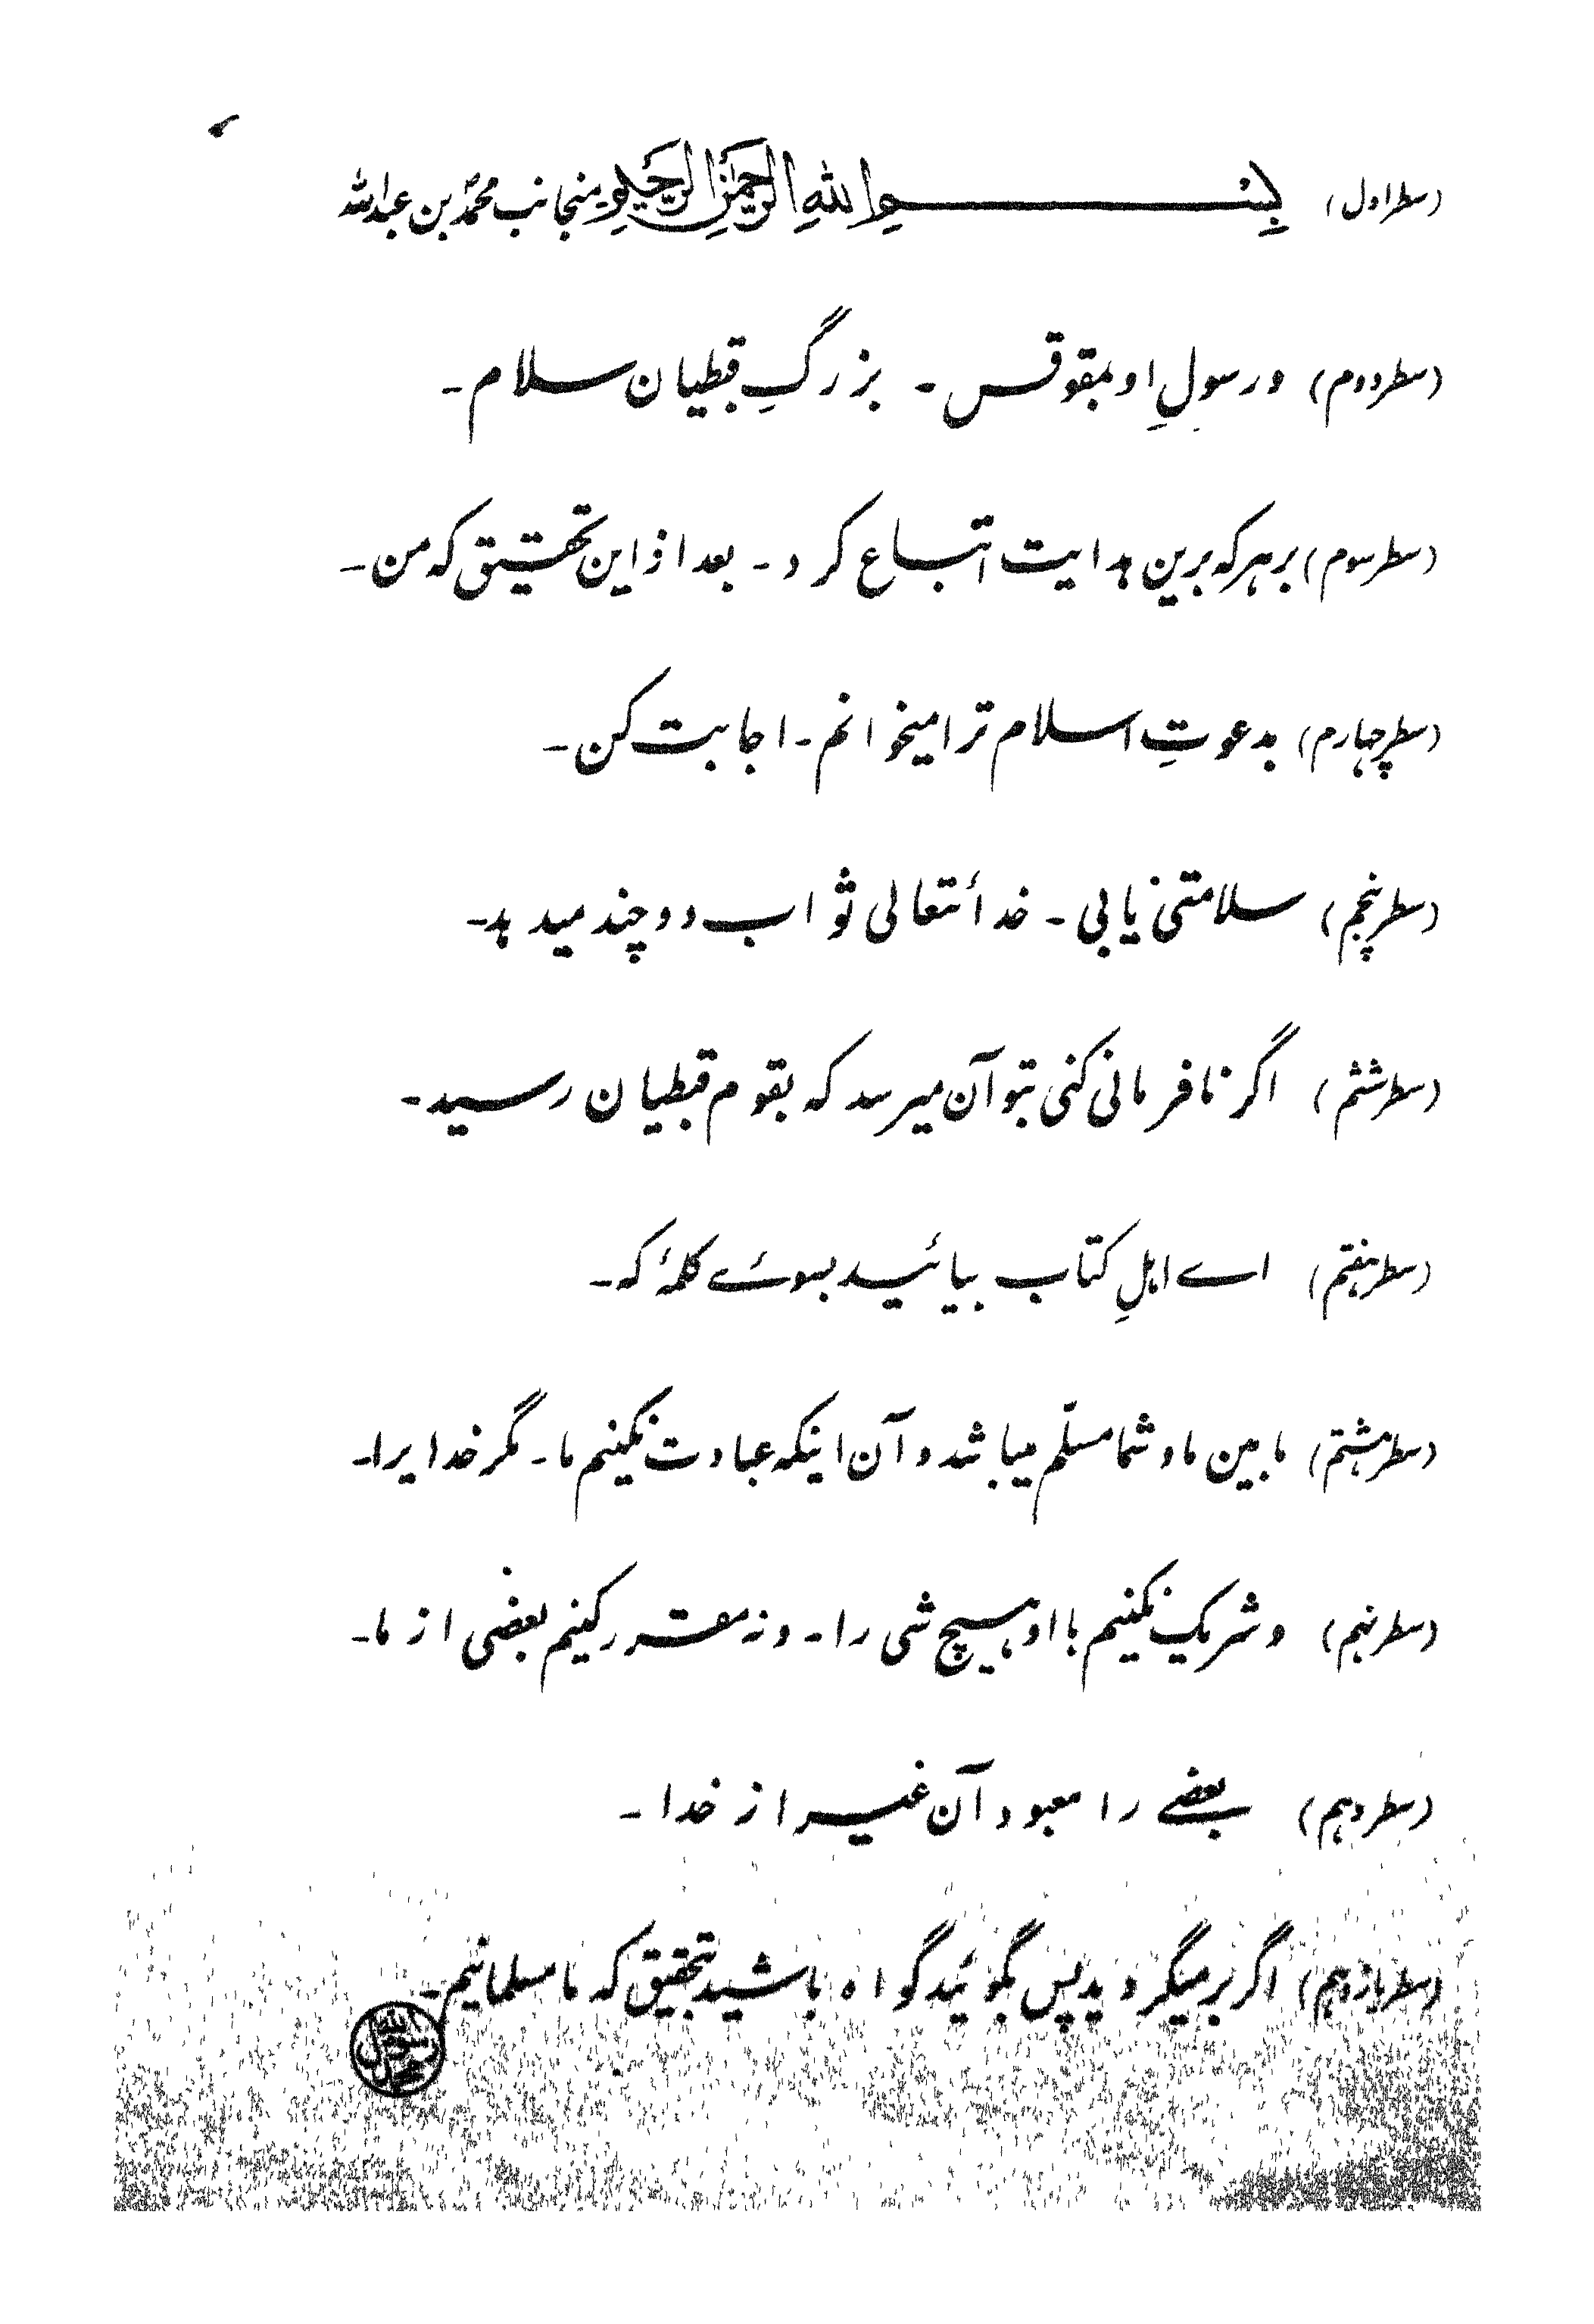 (سطر اول) بِسْمِ اللهِ الرَّحْمٰنِ الرَّحِيْمِ منجانب محمدؐ بن عبداللہ
(سطر دوم) و رسولِ او بمقوقس - بزرگِ قبطیان سلام -
(سطر سوم) بر ہر کہ برین ہدایت اتباع کرد - بعد ازاین تحقیق کہ من -
(سطر چہارم) بدعوتِ اسلام ترا میخوانم - اجابت کن -
(سطر پنجم) سلامتی یابی - خدأتعالی ثواب دوچند میدہد -
(سطر ششم) اگر نافرمانی کنی بتو آن میرسد کہ بقوم قبطیان رسید -
(سطر ہفتم) اے اہلِ کتاب بیائید بسوئے کلمۂ کہ -
(سطر ہشتم) مابین ما و شما مسلّم میباشد و آن اینکہ عبادت نکنیم ما - مگر خدایرا -
(سطر نہم) و شریک نکنیم با او ہیچ شی را - و نہ مقرر کنیم بعضی از ما -
(سطر دہم) بعضے را معبود آن غیر از خدا -
(سطر یازدہم) اگر برمیگردید پس بگوئید گواہ باشید تحقیق کہ ما مسلمانیم -
اللہ
رسول
محمد